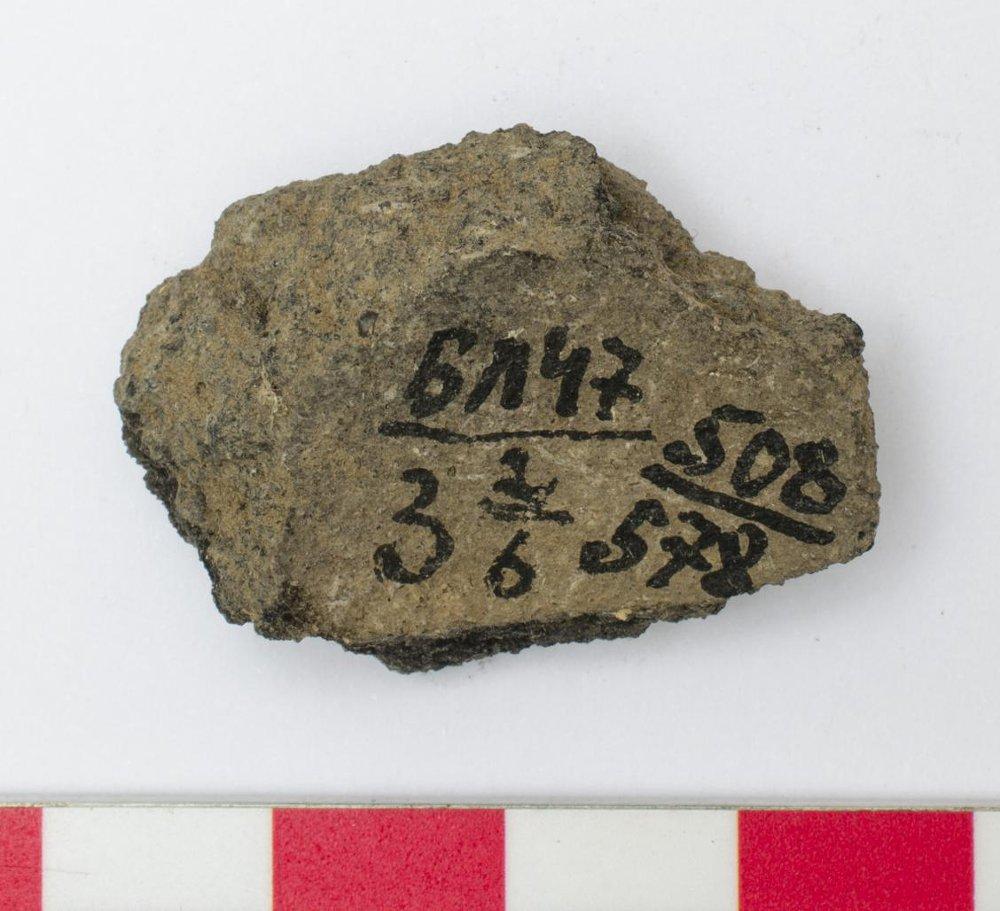 БЛ47
3 2/6
508
578